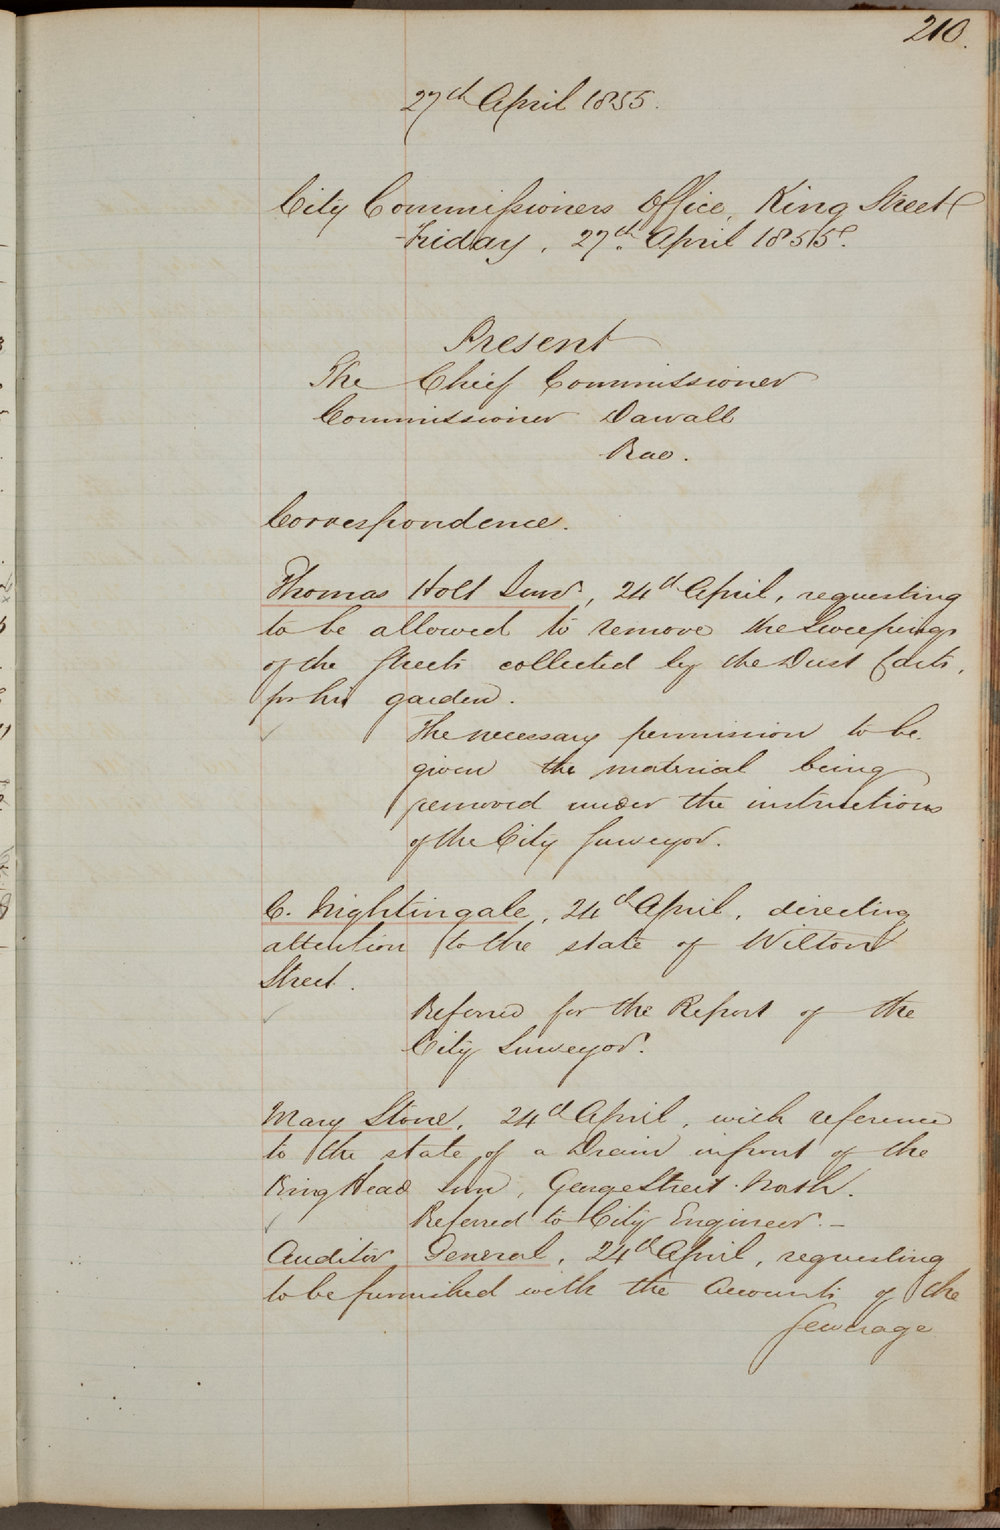 210.
27th April 1855.
City Commissioners Office, King Street
Friday, 27th April 1855.
Present
The Chief Commissioner
Commissioner Darvall
Rae.
Correspondence.
Thomas Holt Junr., 24th April, requesting
to be allowed to remove the Sweepings
of the Streets collected by the Dust Carts,
for his garden.
The necessary permission to be
given the material being
removed under the instructions
of the City Surveyor.
C. Nightingale, 24th April, directing
attention to the state of Wilton
Street.
Referred for the Report of the
City Surveyor.
Mary Stone, 24th April, with reference
to the state of a Drain infront of the
King Head Inn, George Street North.
Referred to City Engineer. —
Auditor General, 24th April, requesting
to be furnished with the Accounts of the
Sewerage